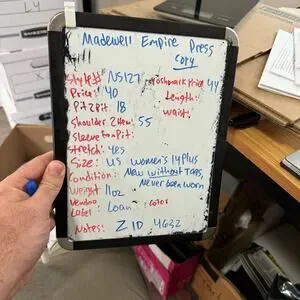 Madewell Empire Dress
Copy
Style# NS127
Poshmark Price 44
Price: 40
Length:
Pit2pit: 18
waist:
Shoulder 2 Hem: 55
Sleeve to Pit:
Stretch: yes
Size: US Women's 14 Plus
Condition: New without Tags,
Never been worn
Weight 11oz
Vendoo Label Loan Color
Notes: ZID 4632